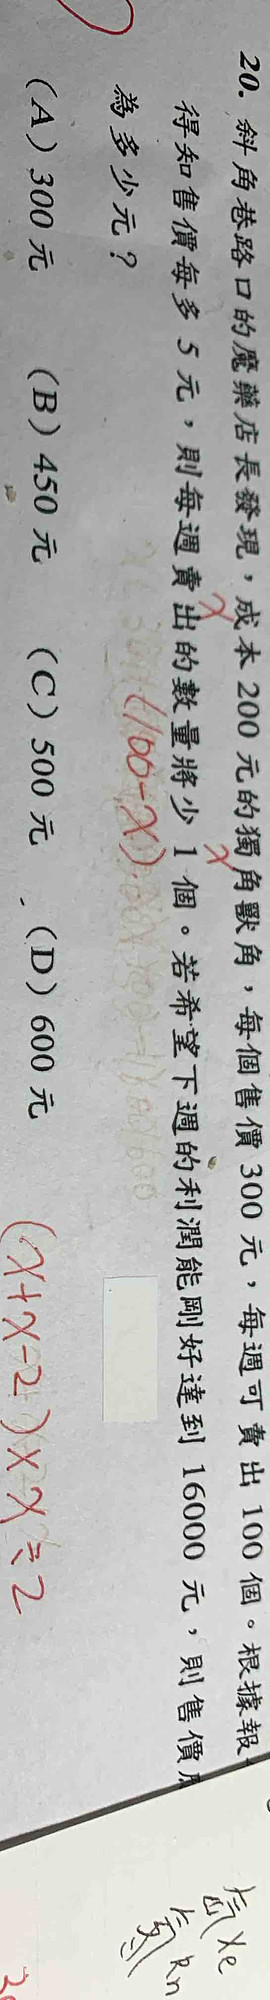 20. 斜角巷路口的魔藥店長發現，成本 200 元的獨角獸角，每個售價 300 元，每週可賣出 100 個。根據報
得知售價每多 5 元，則每週賣出的數量將少 1 個。若希望下週的利潤能剛好達到 16000 元，則售價
為多少元？
(A) 300 元 (B) 450 元 (C) 500 元 (D) 600 元
x
x
(100-x)
(x+x-2)×x÷2
氙 Xe
氡 Rn